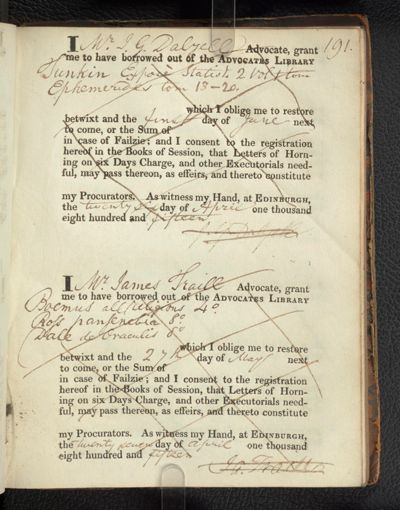 191.
I Mr. J. G. Dalyell Advocate, grant
me to have borrowed out of the ADVOCATES LIBRARY
Junkin Espoir Statist. 2 Vol. tom
Ephemerides tom 18-20.
which I oblige me to restore
betwixt and the first day of June next,
to come, or the Sum of
in case of Failzie; and I consent to the registration
hereof in the Books of Session, that Letters of Horn-
ing on six Days Charge, and other Executorials need-
ful, may pass thereon, as effeirs, and thereto constitute
my Procurators. As witness my Hand, at EDINBURGH,
the twenty day of April one thousand
eight hundred and fifteen.
I Mr. James Traill Advocate, grant
me to have borrowed out of the ADVOCATES LIBRARY
Boemus all Religions 4o
Ross pansenebia 8o
Dale de oraculis 8o
which I oblige me to restore
betwixt and the 27th day of May next
to come, or the Sum of
in case of Failzie; and I consent to the registration
hereof in the Books of Session, that Letters of Horn-
ing on six Days Charge, and other Executorials need-
ful, may pass thereon, as effeirs, and thereto constitute
my Procurators. As witness my Hand, at EDINBURGH,
the twenty seven day of April one thousand
eight hundred and fifteen
Ja. Traill